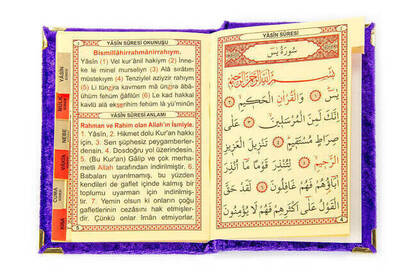 YÂSÎN SÛRESİ OKUNUŞU
Bismillâhirrahmânirrahîym.
Yâsîn (1) Vel kur'ânil hakiym (2) İnne-
ke le minel murseliyn (3) Alâ sırâtım
müstekıym (4) Tenziylel azizyir rahıym
(5) Li tünzira kavmem mâ ünzira âbâ-
ühüm fehüm ğâfilûn (6) Le kad hakkal
kavlü alâ ekserihim fehüm lâ yü'minûn
YÂSÎN SÛRESİ ANLAMI
Rahman ve Rahim olan Allah'ın ismiyle.
1. Yâsîn, 2. Hikmet dolu Kur'an hakkı
için, 3. Sen şüphesiz peygamberler-
densin, 4. Dosdoğru yol üzerindesin.
5. (Bu Kur'an) Gâlip ve çok merha-
metli Allah tarafından indirilmiştir. 6.
Babaları uyarılmamış, bu yüzden
kendileri de gaflet içinde kalmış bir
toplumu uyarman için indirilmiş-
tir. 7 Yemin olsun ki onların çoğu
gafletlerinin cezâsını hak etmişler-
dir. Çünkü onlar îmân etmiyorlar,
YÂSÎN
MÜLK
NEBE
VAKIA
CUMA
KISA
YÂSİN SÛRESİ
سُورَةُ يٰسٓ
بِسْمِ اللّٰهِ الرَّحْمٰنِ الرَّحِيمِ
يٰسٓ ﴿١﴾ وَالْقُرْاٰنِ الْحَكِيمِ ﴿٢﴾
اِنَّكَ لَمِنَ الْمُرْسَلِينَ ﴿٣﴾ عَلٰى
صِرَاطٍ مُسْتَقِيمٍ ﴿٤﴾ تَنْزِيلَ الْعَزِيزِ
الرَّحِيمِ ﴿٥﴾ لِتُنْذِرَ قَوْمًا مَا اُنْذِرَ
اٰبَاؤُهُمْ فَهُمْ غَافِلُونَ ﴿٦﴾ لَقَدْ حَقَّ
الْقَوْلُ عَلٰى اَكْثَرِهِمْ فَهُمْ لَا يُؤْمِنُونَ